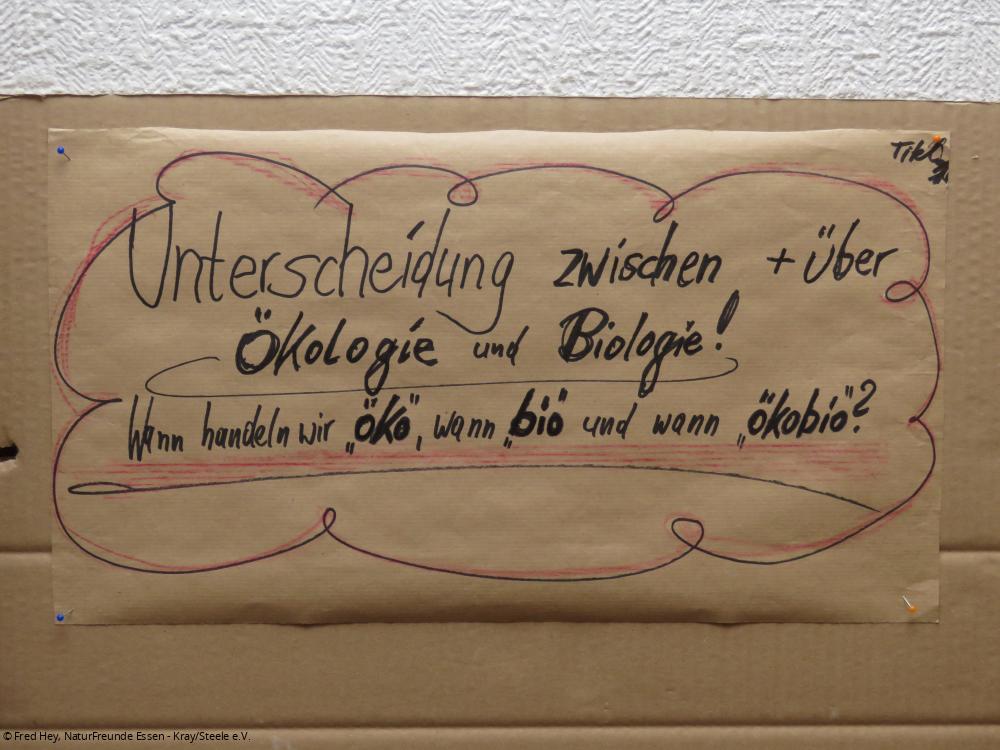 Unterscheidung zwischen + über
Ökologie und Biologie!
Wann handeln wir „öko“, wann „bio“ und wann „ökobio“?
© Fred Hey, NaturFreunde Essen - Kray/Steele e.V.